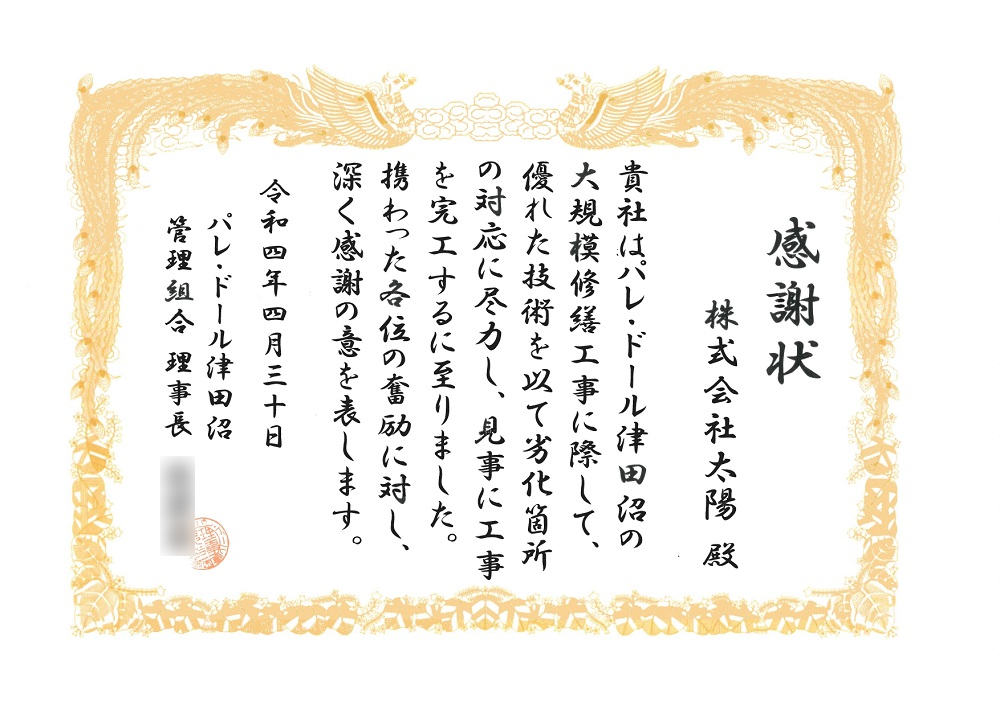 感謝状
株式会社太陽 殿
貴社はパレ・ドール津田沼の
大規模修繕工事に際して、
優れた技術を以て劣化箇所
の対応に尽力し、見事に工事
を完工するに至りました。
携わった各位の奮励に対し、
深く感謝の意を表します。
令和四年四月三十日
パレ・ドール津田沼
管理組合 理事長